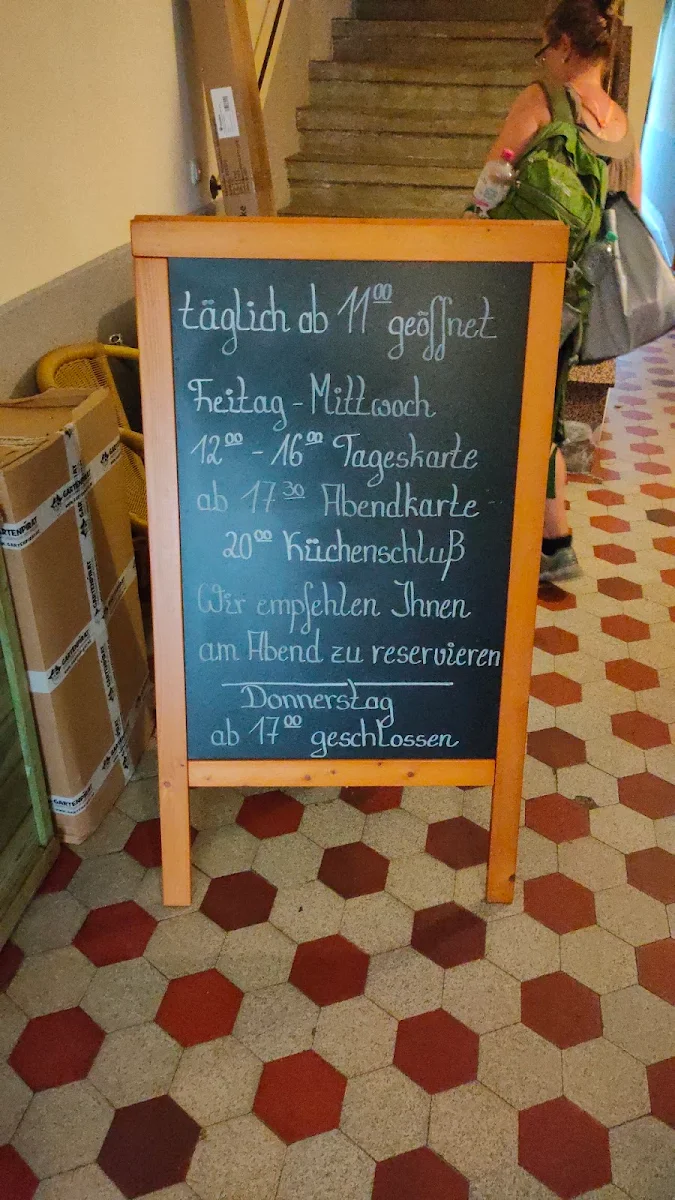 täglich ab 11⁰⁰ geöffnet
Freitag - Mittwoch
12⁰⁰ - 16⁰⁰ Tageskarte
ab 17³⁰ Abendkarte
20⁰⁰ Küchenschluß
Wir empfehlen Ihnen
am Abend zu reservieren
Donnerstag
ab 17⁰⁰ geschlossen
GARTENPIRAT
GARTENPIRAT
GARTENPIRAT
GARTENPIRAT